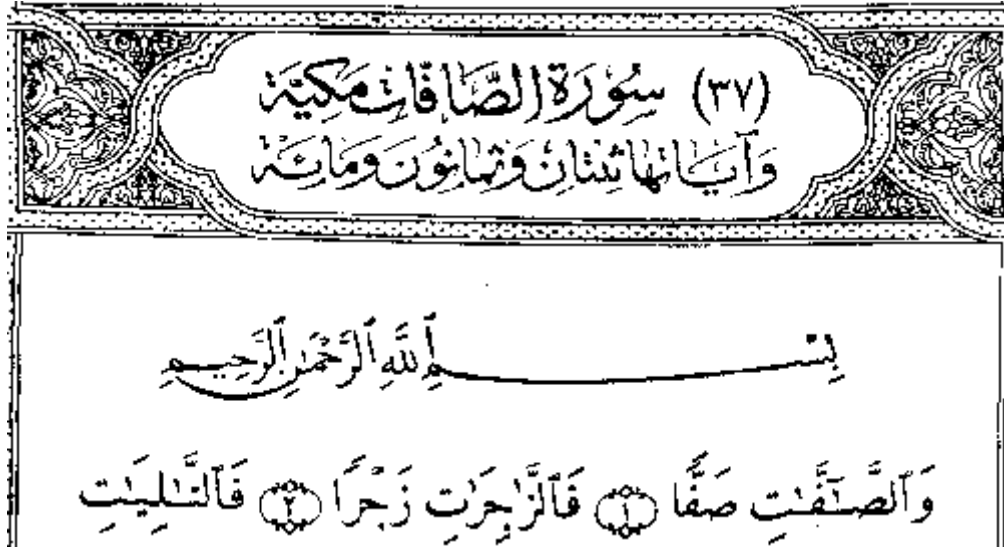 (٣٧) سُوْرَةُ الصَّافَّاتِ مَكِيَّة
وَآيَاتهَا ثِنْتَانِ وَثَمَانُونَ وَمَائة
بِسْمِ ٱللَّهِ ٱلرَّحْمَٰنِ ٱلرَّحِيمِ
وَٱلصَّٰٓفَّٰتِ صَفًّا ١ فَٱلزَّٰجِرَٰتِ زَجْرًا ٢ فَٱلتَّٰلِيَٰتِ